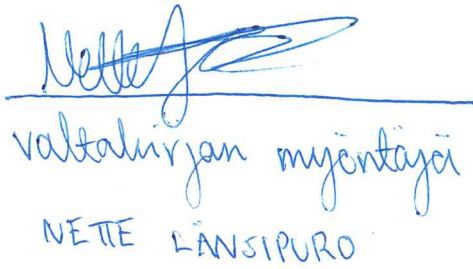 Nette
valtakirjan myöntäjä
NETTE LÄNSIPURO